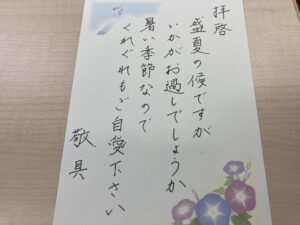 拝啓
盛夏の候ですが
いかがお過しでしょうか
暑い季節なので
くれぐれもご自愛下さい
敬具